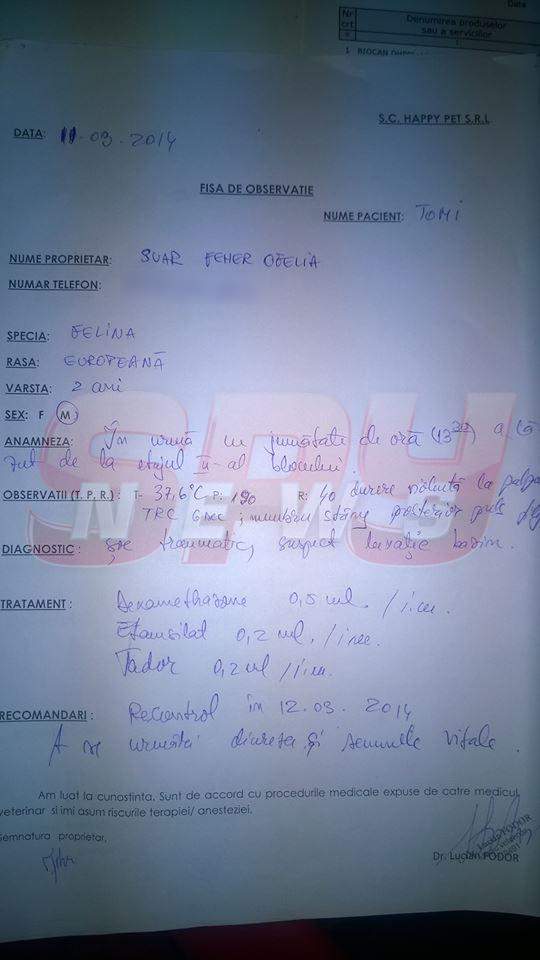 Data
Nr crt
Denumirea produselor
sau a serviciilor
1
1 BIOCAN
S.C. HAPPY PET S.R.L
DATA: 11.03.2014
FISA DE OBSERVATIE
NUME PACIENT: TOMI
NUME PROPRIETAR: SUAR FEHER OFELIA
NUMAR TELEFON:
SPECIA: FELINA
RASA: EUROPEANĂ
VARSTA: 2 ani
SEX: F M
ANAMNEZA: În urmă cu jumătate de oră (13 30) a că
zut de la etajul II-al blocului
OBSERVATII (T. P. R.): T- 37,6°C P: 190 R: 40 durere violentă la palpa
TRC 6 sec; membru stâng posterior
DIAGNOSTIC: șoc traumatic, suspect luxație bazin.
TRATAMENT: Dexamethasone 0,5 ml. / i.m.
Etamsilat 0,2 ml. / i.m.
Tador 0,2 ml / i.m.
RECOMANDARI: Recontrol în 12.03.2014
A se urmări diureza și semnele vitale.
Am luat la cunostinta. Sunt de accord cu procedurile medicale expuse de catre medicul
veterinar si imi asum riscurile terapiei/ anesteziei.
Semnatura proprietar,
Dr. Lucian FODOR
SPY
NEWS